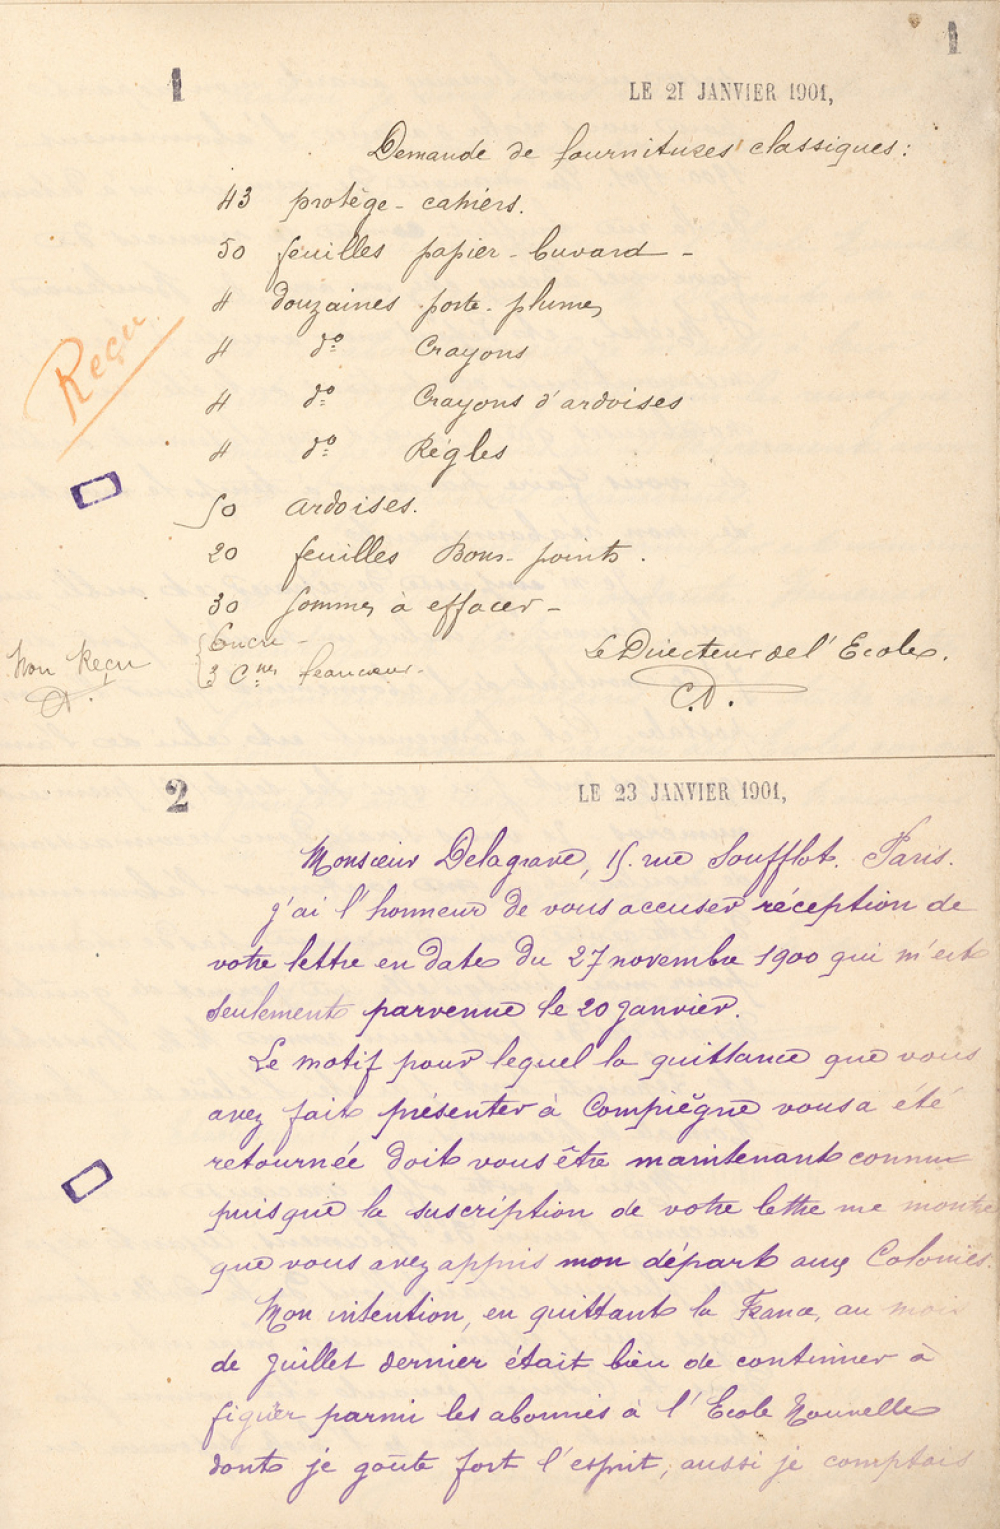 1
1
LE 21 JANVIER 1901,
Demande de fournitures classiques :
43 protège-cahiers.
50 feuilles papier-buvard -
4 douzaines porte-plumes
4 do Crayons
4 do Crayons d'ardoises
4 do Règles
50 ardoises.
20 feuilles Bons-points.
30 Gommes à effacer -
Encre -
3 Cnes
Reçu
Non Reçu
Le Directeur de l'Ecole.
C.D.
2
LE 23 JANVIER 1901,
Monsieur Delagrave, 15. rue Soufflot. Paris.
J'ai l'honneur de vous accuser réception de
votre lettre en date du 27 novembre 1900 qui m'est
seulement parvenue le 20 Janvier.
Le motif pour lequel la quittance que vous
avez fait présenter à Compiègne vous a été
retournée doit vous être maintenant connu
puisque la suscription de votre lettre me montre
que vous avez appris mon départ aux Colonies.
Mon intention, en quittant la France, au mois
de Juillet dernier était bien de continuer à
figurer parmi les abonnés à l'Ecole Nouvelle
dont je goûte fort l'esprit, aussi je comptais